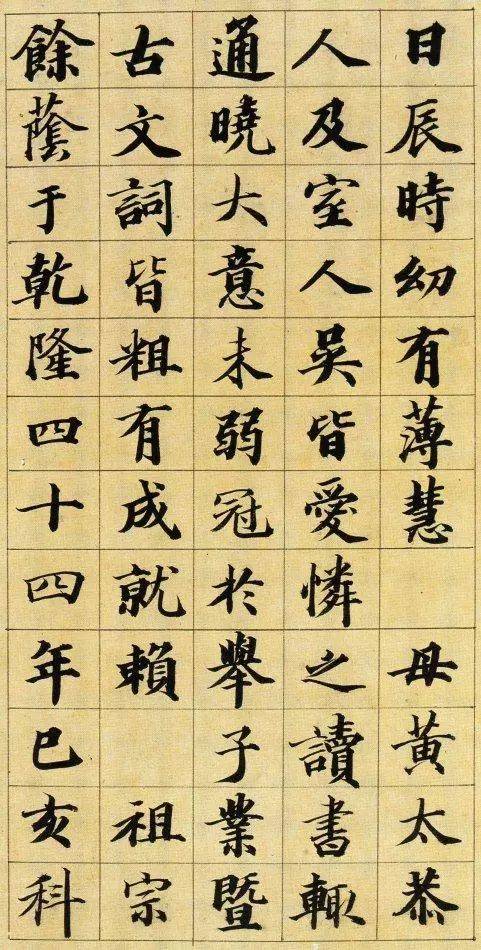 日辰時幼有薄慧 母黃太恭
人及室人吳皆愛憐之讀書輙
通曉大意未弱冠於舉子業暨
古文詞皆粗有成就賴 祖宗
餘蔭于乾隆四十四年巳亥科